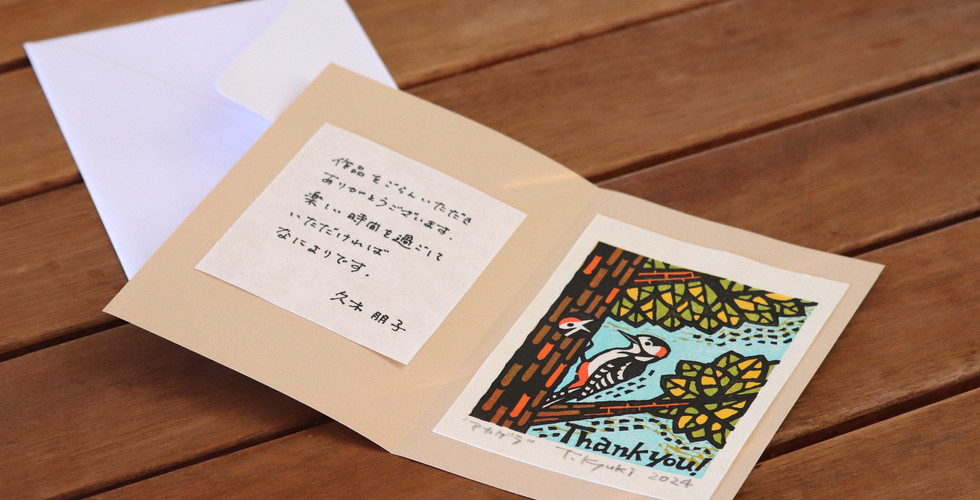 作品をごらんいただき
ありがとうございます。
楽しい時間を過ごして
いただければ
なによりです。
久木朋子
Thank you!
"アカゲラ" T.Kyuki 2024